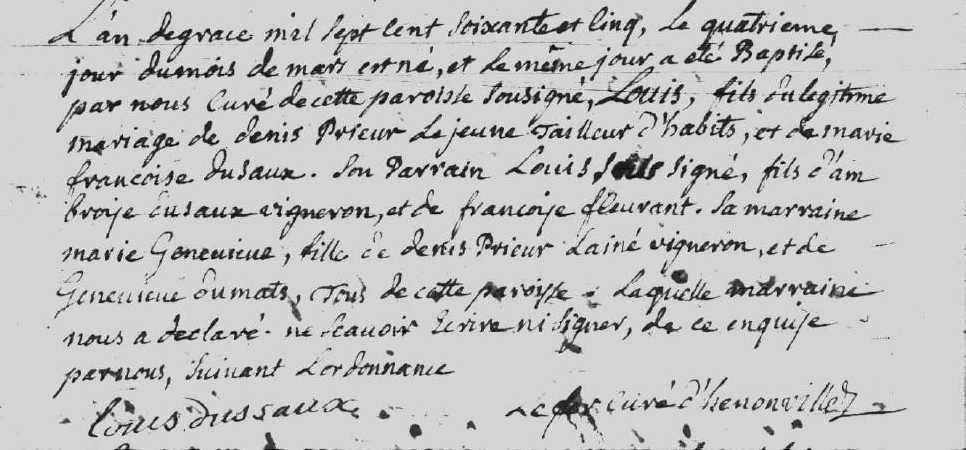 L'an de grace mil sept cent soixante et cinq, Le quatrieme,
jour du mois de mars est né, et le même jour a eté Baptisé,
par nous Curé de cette paroisse sousigné, Louis, fils du legitime
mariage de denis Prieur Le jeune Tailleur d'habits, et de marie
francoise dusaux. Son Parrain Louis, signé, fils d'am
broise dusaux vigneron, et de francoise fleurant. Sa marraine
marie Genevieve, fille de denis Prieur Lainé vigneron, et de
Genevieve dumats, Tous de cette paroisse. Laquelle marraine
nous a declaré ne scavoir Ecrire ni signer, de ce enquise
par nous, suivant L'ordonnance
Louis Dussaux. curé d'henonville